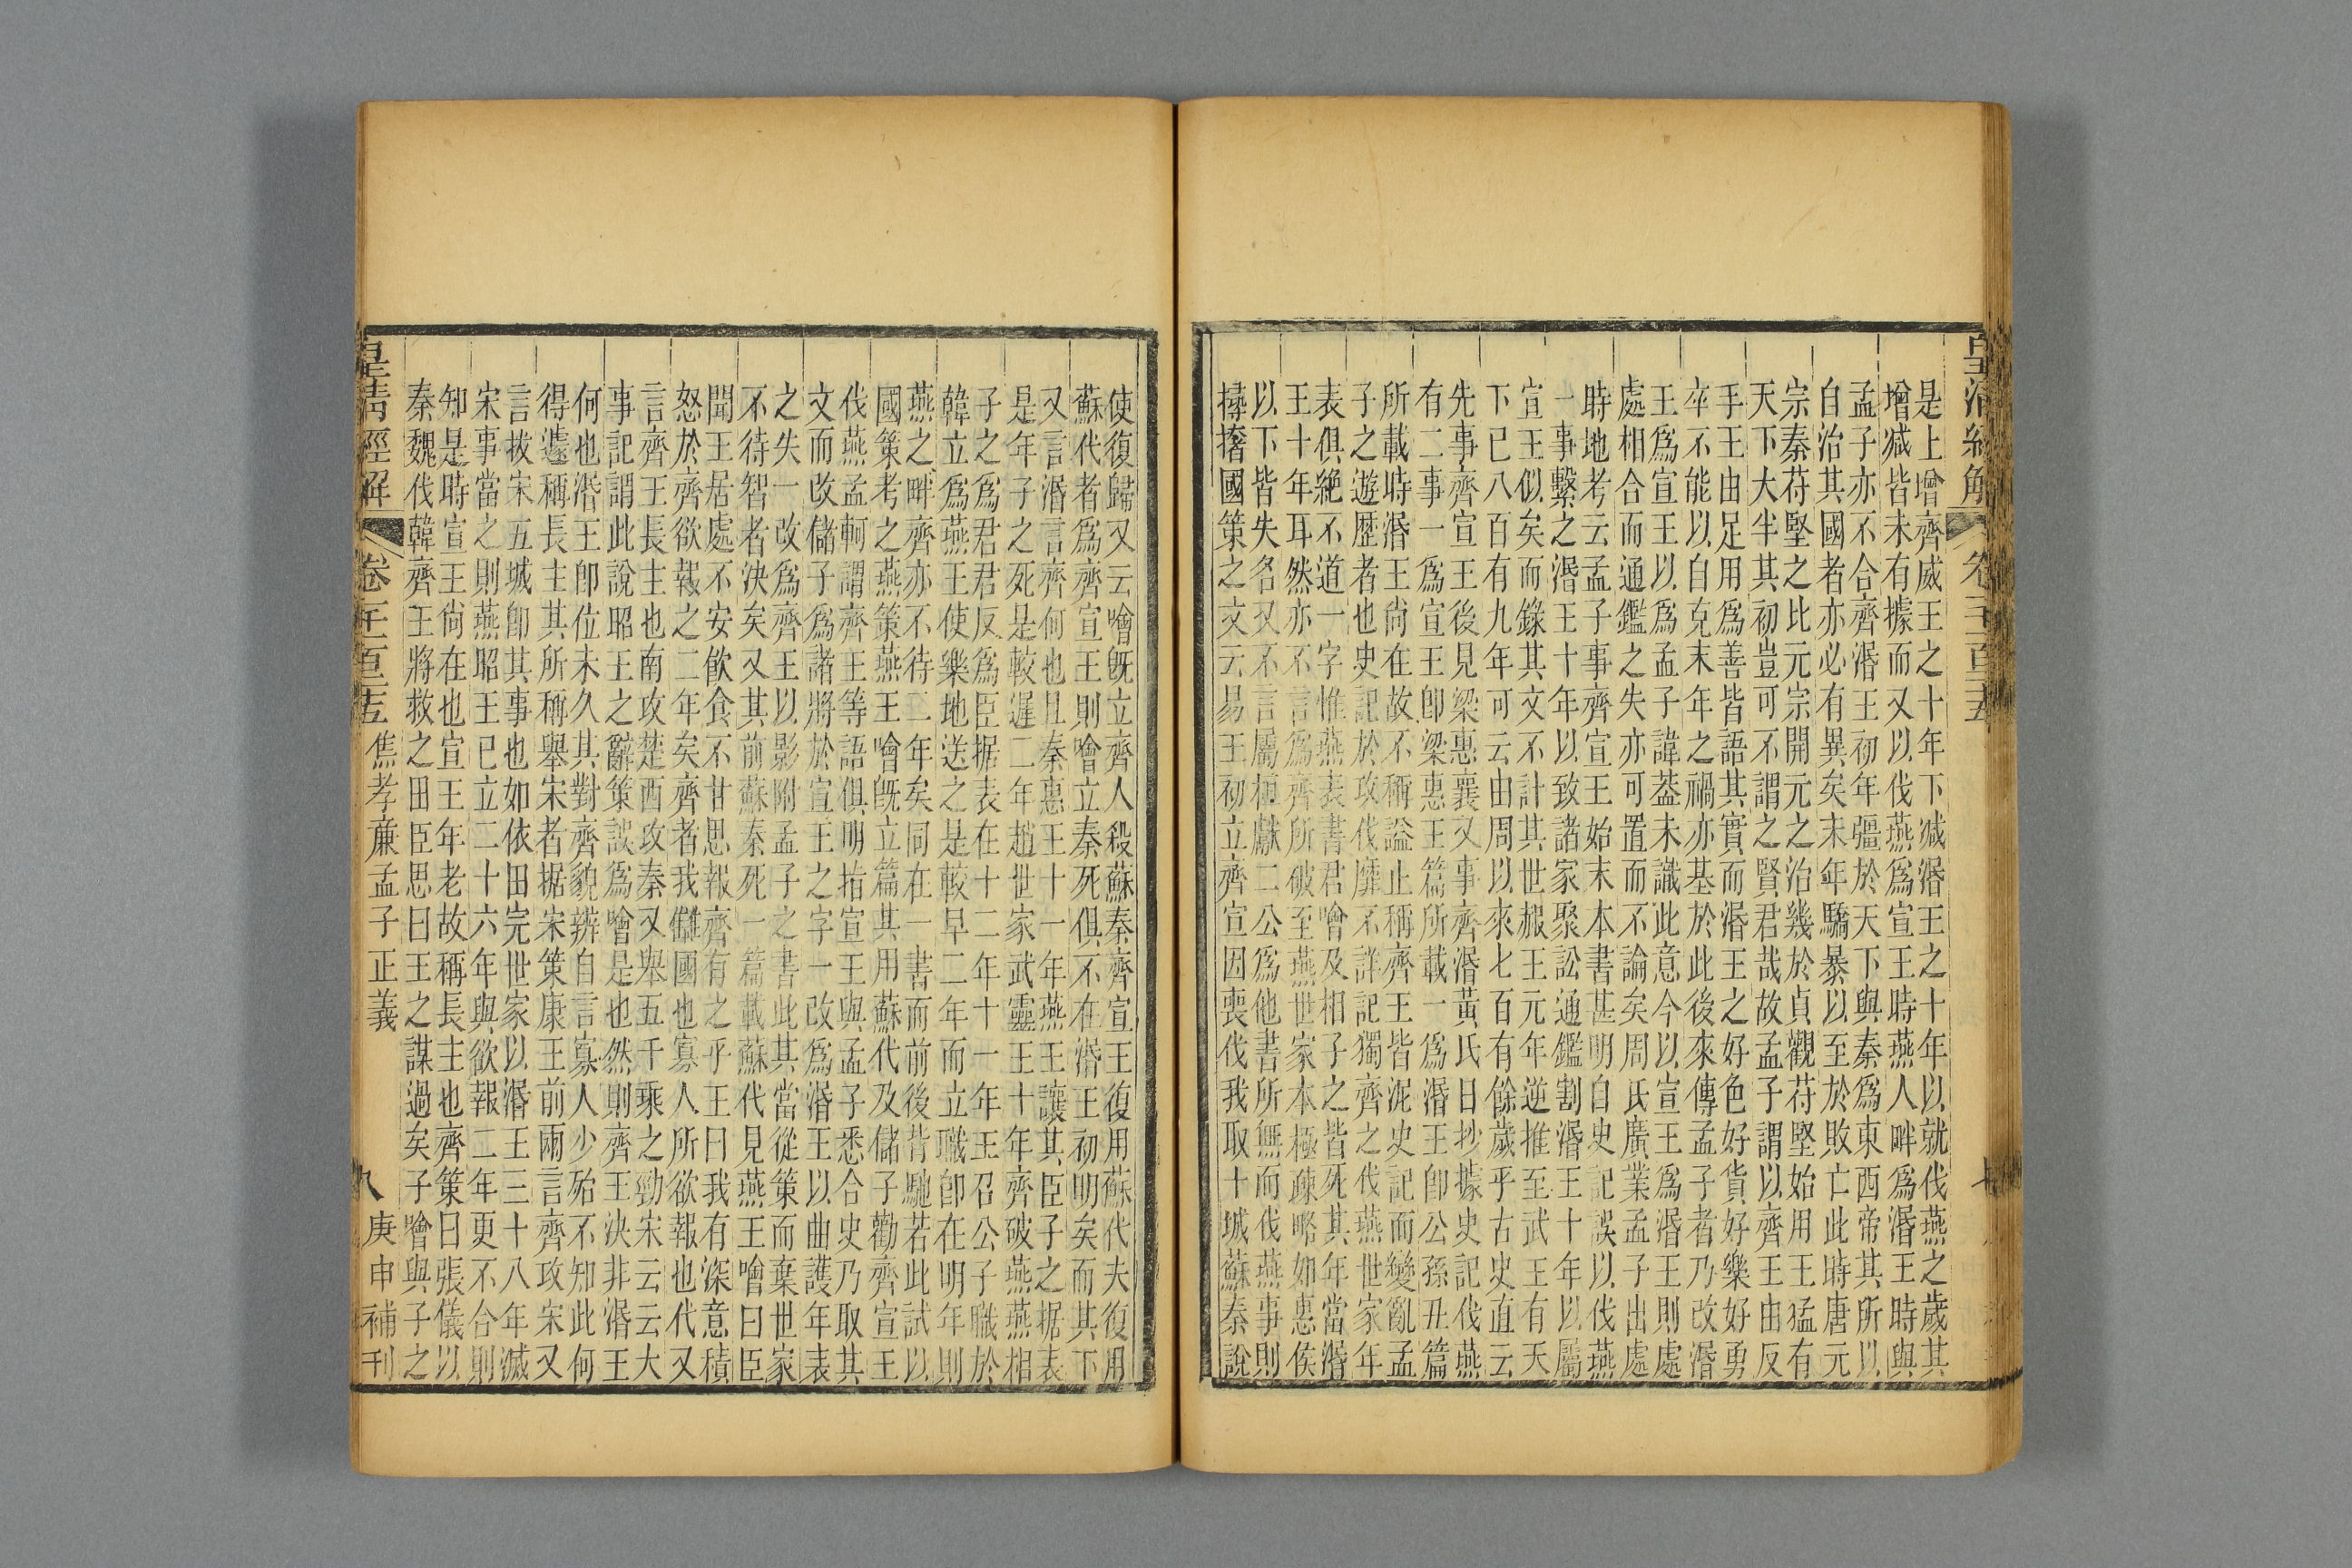 皇清經解
卷二百五
是上增齊威王之十年下减湣王之十年以就伐燕之歲其
增减皆未有據而又以伐燕爲宣王時燕人畔爲湣王時與
孟子亦不合齊湣王初年彊於天下與秦爲東西帝其所以
自治其國者亦必有異矣末年驕暴以至於敗亡此時唐元
宗秦苻堅之比元宗開元之治幾於貞觀苻堅始用王猛有
天下大半其初豈可不謂之賢君哉故孟子謂以齊王由反
手王由足用爲善皆語其實而湣王之好色好貨好樂好勇
卒不能以自克末年之禍亦基於此後來傳孟子者乃改湣
王爲宣王以爲孟子諱葢未識此意今以宣王爲湣王則處
處相合而通鑑之失亦可置而不論矣周氏廣業孟子出處
時地考云孟子事齊宣王始末本書甚明自史記誤以伐燕
一事繫之湣王十年以致諸家聚訟通鑑割湣王十年以屬
宣王似矣而錄其文不計其世赧王元年逆推至武王有天
下已八百有九年可云由周以來七百有餘歲乎古史直云
先事齊宣王後見梁惠襄又事齊湣黃氏日抄據史記伐燕
有二事一爲宣王卽梁惠王篇所載一爲湣王卽公孫丑篇
所載時湣王尙在故不稱謚止稱齊王皆泥史記而變亂孟
子之遊歷者也史記於攻伐靡不詳記獨齊之伐燕世家年
表俱絶不道一字惟燕表書君噲及相子之皆死其年當湣
王十年耳然亦不言爲齊所破至燕世家本極疎略如惠侯
以下皆失名又不言屬桓獻二公爲他書所無而伐燕事則
撏撦國策之文云易王初立齊宣因喪伐我取十城蘇秦說
使復歸又云噲旣立齊人殺蘇秦齊宣王復用蘇代夫復用
蘇代者爲齊宣王則噲立秦死俱不在湣王初明矣而其下
又言湣言齊何也且秦惠王十一年燕王讓其臣子之据表
是年子之死是較遲二年趙世家武靈王十年齊破燕燕相
子之爲君君反爲臣据表在十二年十一年王召公子職於
韓立爲燕王使樂地送之是較早二年而立職卽在明年則
燕之畔齊亦不待二年矣同在一書而前後背馳若此試以
國策考之燕策燕王噲旣立篇其用蘇代及儲子勸齊宣王
伐燕孟軻謂齊王等語俱明指宣王與孟子悉合史乃取其
文而改儲子爲諸將於宣王之字一改爲湣王以曲護年表
之失一改爲齊王以影附孟子之書此其當從策而棄世家
不待智者決矣又其前蘇秦死一篇載蘇代見燕王噲曰臣
聞王居處不安飮食不甘思報齊有之乎王曰我有深意積
怒於齊欲報之二年矣齊者我讎國也寡人所欲報也代又
言齊王長主也南攻楚西攻秦又舉五千乘之勁宋云云大
事記謂此說昭王之辭策誤爲噲是也然則齊王決非湣王
何也湣王卽位未久其對齊貌辨自言寡人少殆不知此何
得遽稱長主其所稱舉宋者据宋策康王前兩言齊攻宋又
言拔宋五城卽其事也如依田完世家以湣王三十八年滅
宋事當之則燕昭王已立二十六年與欲報二年更不合則
知是時宣王尙在也宣王年老故稱長主也齊策曰張儀以
秦魏伐韓齊王將救之田臣思曰王之謀過矣子噲與子之
皇清經解
卷二百五
焦孝廉孟子正義
九
庚申補刊